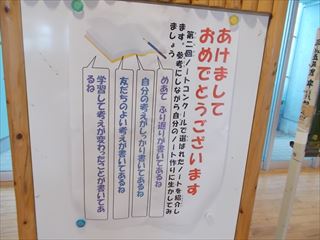 あけまして
おめでとうございます
第二回ノートコンクールで選ばれたノートを紹介し
ます。参考にしながら自分のノート作りに生かしてみ
ましょう
めあて ふり返りが書いてあるね
自分の考えがしっかり書いてあるね
友だちのよい考えが書いてあるね
学習して考えが変わったことが書いてあ
るね